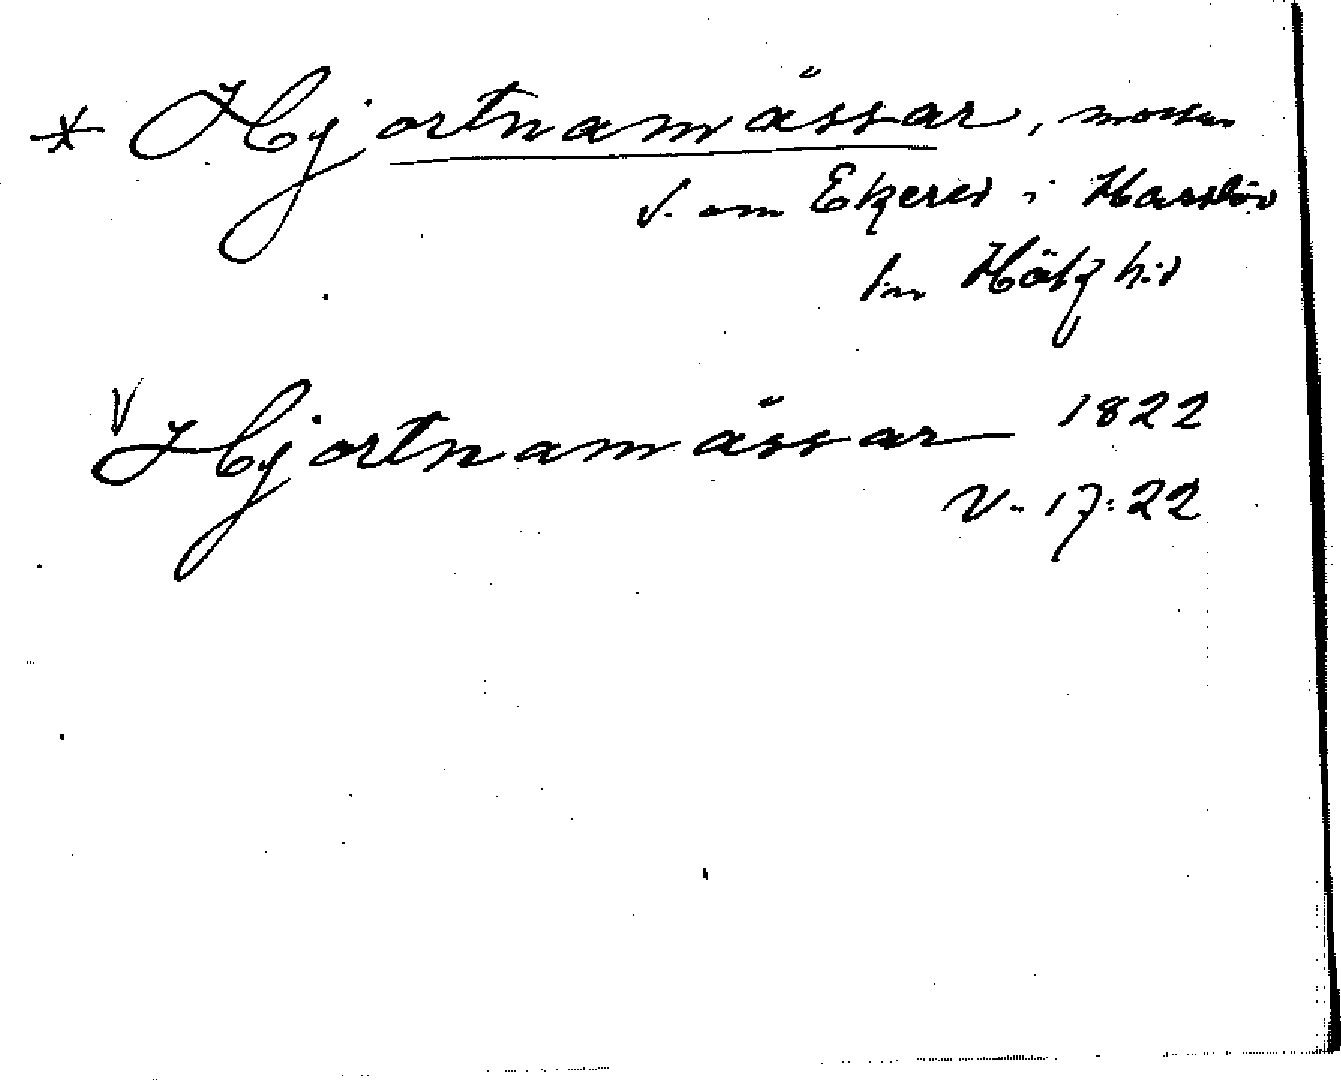 * Hjortnamässar, mossen
V. om Ekered i Harslöv
Höks h:d
V Hjortnamässar 1822
V. 17:22